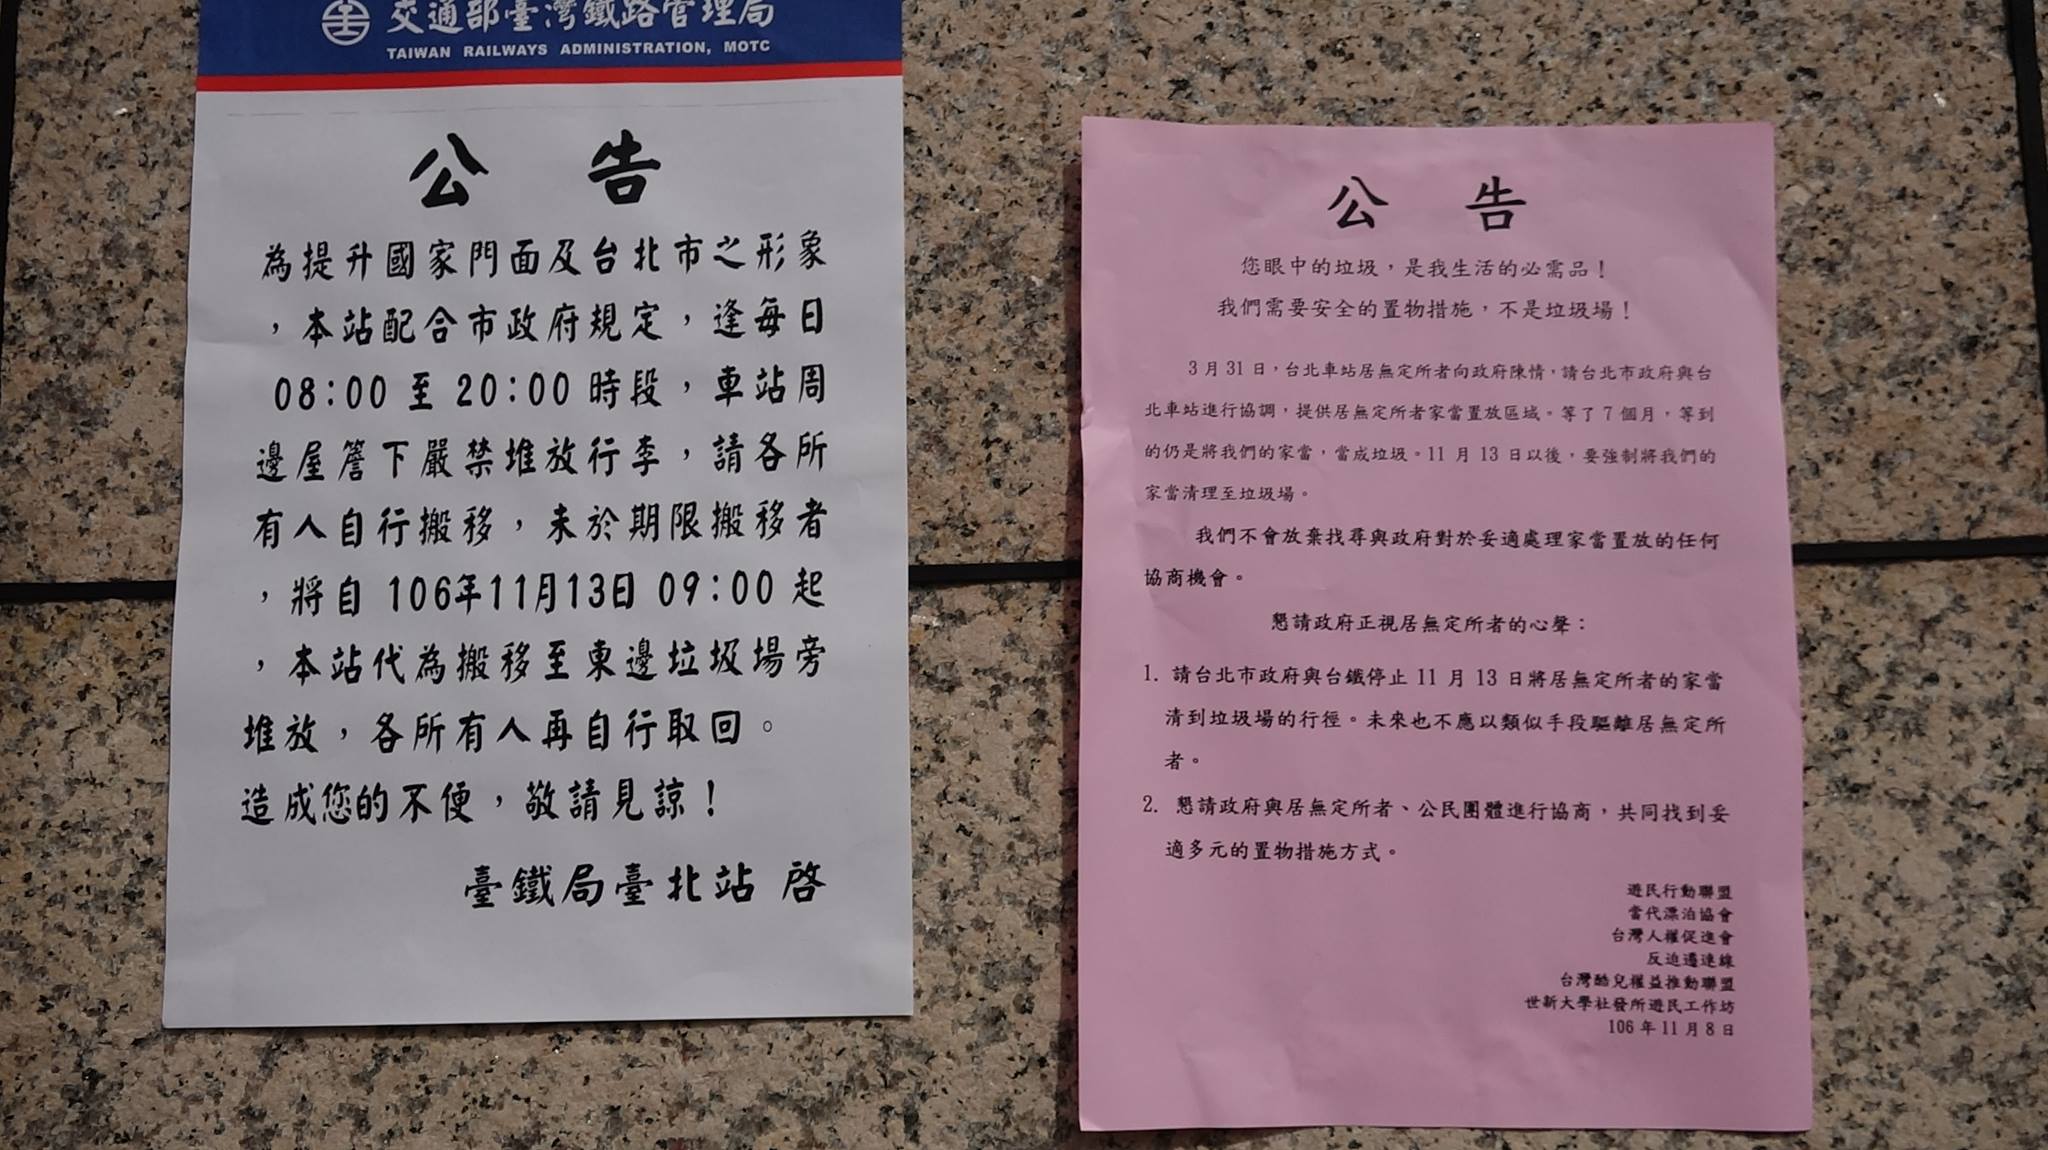 交通部臺灣鐵路管理局
TAIWAN RAILWAYS ADMINISTRATION, MOTC
公 告
為提升國家門面及台北市之形象
，本站配合市政府規定，逢每日
08:00 至 20:00 時段，車站周
邊屋簷下嚴禁堆放行李，請各所
有人自行搬移，未於期限搬移者
，將自 106年11月13日 09:00 起
，本站代為搬移至東邊垃圾場旁
堆放，各所有人再自行取回。
造成您的不便，敬請見諒！
臺鐵局臺北站 啓
公 告
您眼中的垃圾，是我生活的必需品！
我們需要安全的置物措施，不是垃圾場！
3 月 31 日，台北車站居無定所者向政府陳情，請台北市政府與台
北車站進行協調，提供居無定所者家當置放區域。等了 7 個月，等到
的仍是將我們的家當，當成垃圾。11 月 13 日以後，要強制將我們的
家當清理至垃圾場。
我們不會放棄找尋與政府對於妥適處理家當置放的任何
協商機會。
懇請政府正視居無定所者的心聲：
1. 請台北市政府與台鐵停止 11 月 13 日將居無定所者的家當
清到垃圾場的行徑。未來也不應以類似手段驅離居無定所
者。
2. 懇請政府與居無定所者、公民團體進行協商，共同找到妥
適多元的置物措施方式。
遊民行動聯盟
當代漂泊協會
台灣人權促進會
反迫遷連線
台灣酷兒權益推動聯盟
世新大學社發所遊民工作坊
106 年 11 月 8 日